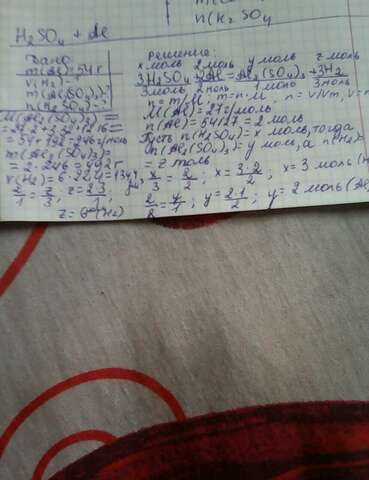 n(H₂SO₄
H₂SO₄ + Al
Дано:
m(Al)=54 г
V(H₂)-?
m(Al₂(SO₄)₃)-?
n(H₂SO₄)-?
Решение:
x моль 2 моль y моль z моль
3H₂SO₄+2Al=Al₂(SO₄)₃+3H₂
3 моль 2 моль 1 моль 3 моль
n=m/M, m=n·M, n=V/Vm, V=n
M(Al)=27 г/моль
n(Al)=54/27=2 моль
Пусть n(H₂SO₄)=x моль, тогда
n(Al₂(SO₄)₃)=y моль, а n(H₂)=
=z моль
x/3=2/2; x=3·2/2; x=3 моль
2/2=y/1; y=2·1/2; y=2 моль
M(Al₂(SO₄)₃)=
=27·2+3·32+12·16=
=54+192=246 г/моль
m(Al₂(SO₄)₃)=
=2·246=492 г
V(H₂)=6·22,4=134,4
2/1=z/3; z=2·3/1;
z=6 (H₂)